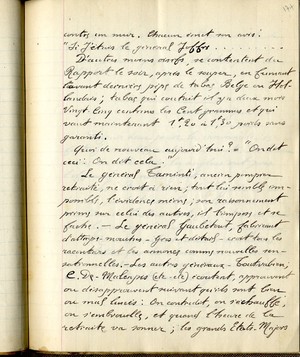 contre un mur. Chacun émet son avis:
"Si j'étais le général Joffre . . . . . . . . .
D'autres moins disposés, se contentent du
Rapport le soir, après le souper, en fumant
leurs derniers pipes de tabac Belge ou Hol-
landais; tabac qui coûtait il y a deux mois
Vingt cinq centimes les Cent grammes et qui
vaut maintenant 1f.20 à 1f.30 poids non
garanti.
Quoi de nouveau aujourd'hui? - "On dit
ceci. On dit cela."
Le général ancien pompier
retraité, ne croit à rien; tout lui semble im-
possible, l'évidence même; son raisonnement
prime sur celui des autres, il s'emporte et se
fâche. - Le général fabricant
d'attrape moutons - gros et détail - croit tous les
racontars et les annonce comme nouvelles sen-
sationnelles. - Les autres généraux
écoutent, approuvent
ou désapprouvent suivant qu'ils sont bien
ou mal lunés: On contredit, on s'échauffe,
on s'embrouille, et quand l'heure de la
retraite va sonner; les grands Etats-Majors